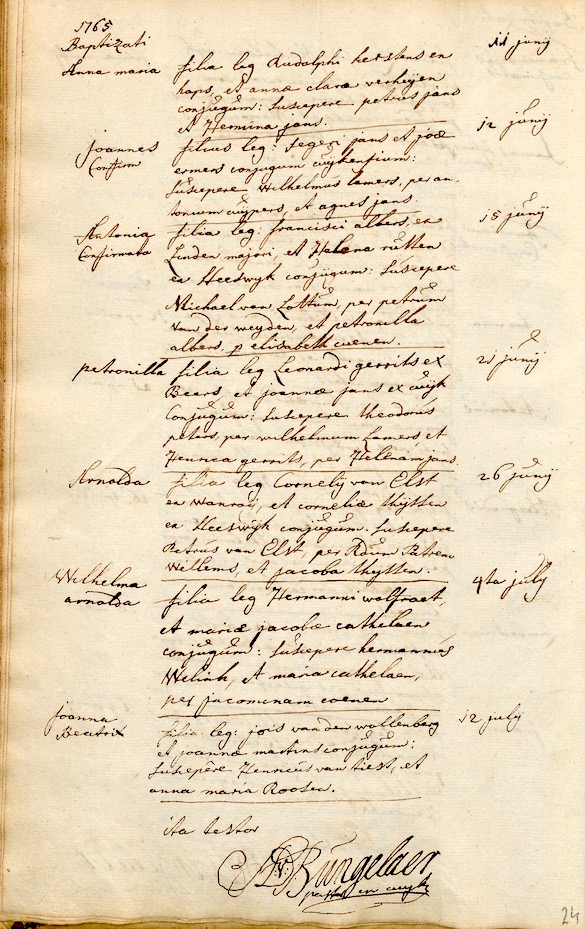 1765
Baptizati
11 junÿ
Anna maria filia leg Rudolphi kerstens en
haps, et annæ claræ verheijen
conjugum: Susepere petrus jans
et Hermina jans.
12 junÿ
Joannes filius leg: Segeri jans et joæ
Confirm ermers conjugum cuijkensium:
Susepere Wilhelmus lamers, per an-
tonium cuijpers, et agnes jans
15 junÿ
Antonia filia leg: francisci albers, ex
Confirmata Linden majori, et Helena rutten
ex Heeswyk conjugum: Susepere
Michael van Lottum, per petrum
van der weyden, et petronilla
albers, p elisabeth coenen.
21 junÿ
petronilla filia leg Leonardi gerrits ex
Beers, et joannæ jans ex cuijk
Conjugum: Susepere theodorus
peters, per wilhelmum Lamers, et
Henrica gerrits, per Helenam jans.
26 junÿ
Arnolda filia leg Cornelij van Elst
en wanraij, et corneliæ thijssen
en Heeswyk conjugum. Susepere
Petrus van Elst, per Rdum Patrem
Willems, et jacoba thyssen.
4ta july
Wilhelma filia leg Hermanni wolfraet,
arnolda et mariæ jacobæ cathelaen
conjugum: Susepere hermannus
Welink, et maria cathelaen,
per jacominam coenen
12 july
joanna filia leg: jois van den wollenberg
Beatrix et joannæ martens conjugum:
Susepere Henricus van tiest, et
anna maria Roosen.
ita testor
Bungelaer
pastor in cuijk
24